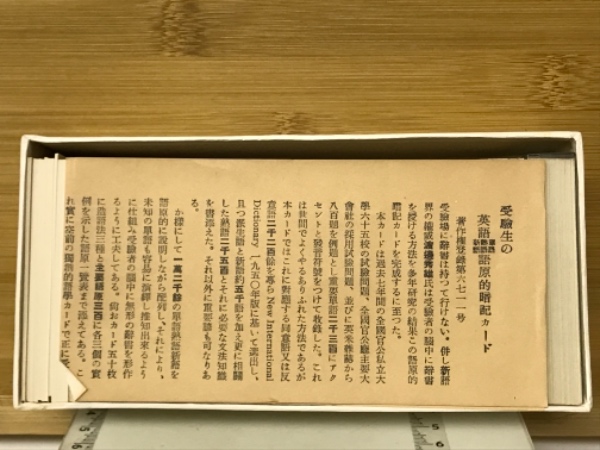 受験生の
英語 単語 熟語 新語 語原的暗記カード
著作権登録第六七一一号
受験場に辞書は持つて行けない。併し新語
界の権威渡邊秀雄氏は受験者の脳中に辞書
を授ける方法を多年研究の結果この語原的
暗記カードを完成するに至つた。
本カードは過去七年間の全國官公私立大
學六十五校の試験問題、全國官公廳主要大
會社の採用試験問題、並びに英米雑誌から
八百題を例題とし重要單語二千三百にアク
セントと發音符號をつけて收錄した。これ
は世間でよくやるありふれた方法であるが
本カードではこれに對應する同意語又は反
意語二千二百餘を專ら New International
Dictionary 一九五〇年版に基いて選出し、
且つ派生語と新語約五千語を加え更に相關
した熟語二千五百とそれに必要な文法知識
を書添えた。それ以外に重要語も可なりあ
る。
か樣にして一萬二千餘の單語熟語新語を
語原的に説明しながら配列し、それにより、
未知の單語も容易に演繹し推知出來るよう
に仕組み受験者の腦中に無形の辞書を形作
るように工夫してある。尚おカード五十枚
に造語法三種と主要語原三百に各三個の實
例を示した語原一覽表まで添えてある。こ
れ實に空前の獨創的語學カードで正に